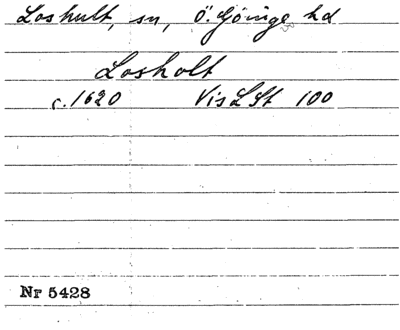 Loshult, sn, Ö. Göinge hd
Losholt
c. 1620 Vis LSt 100
Nr 5428